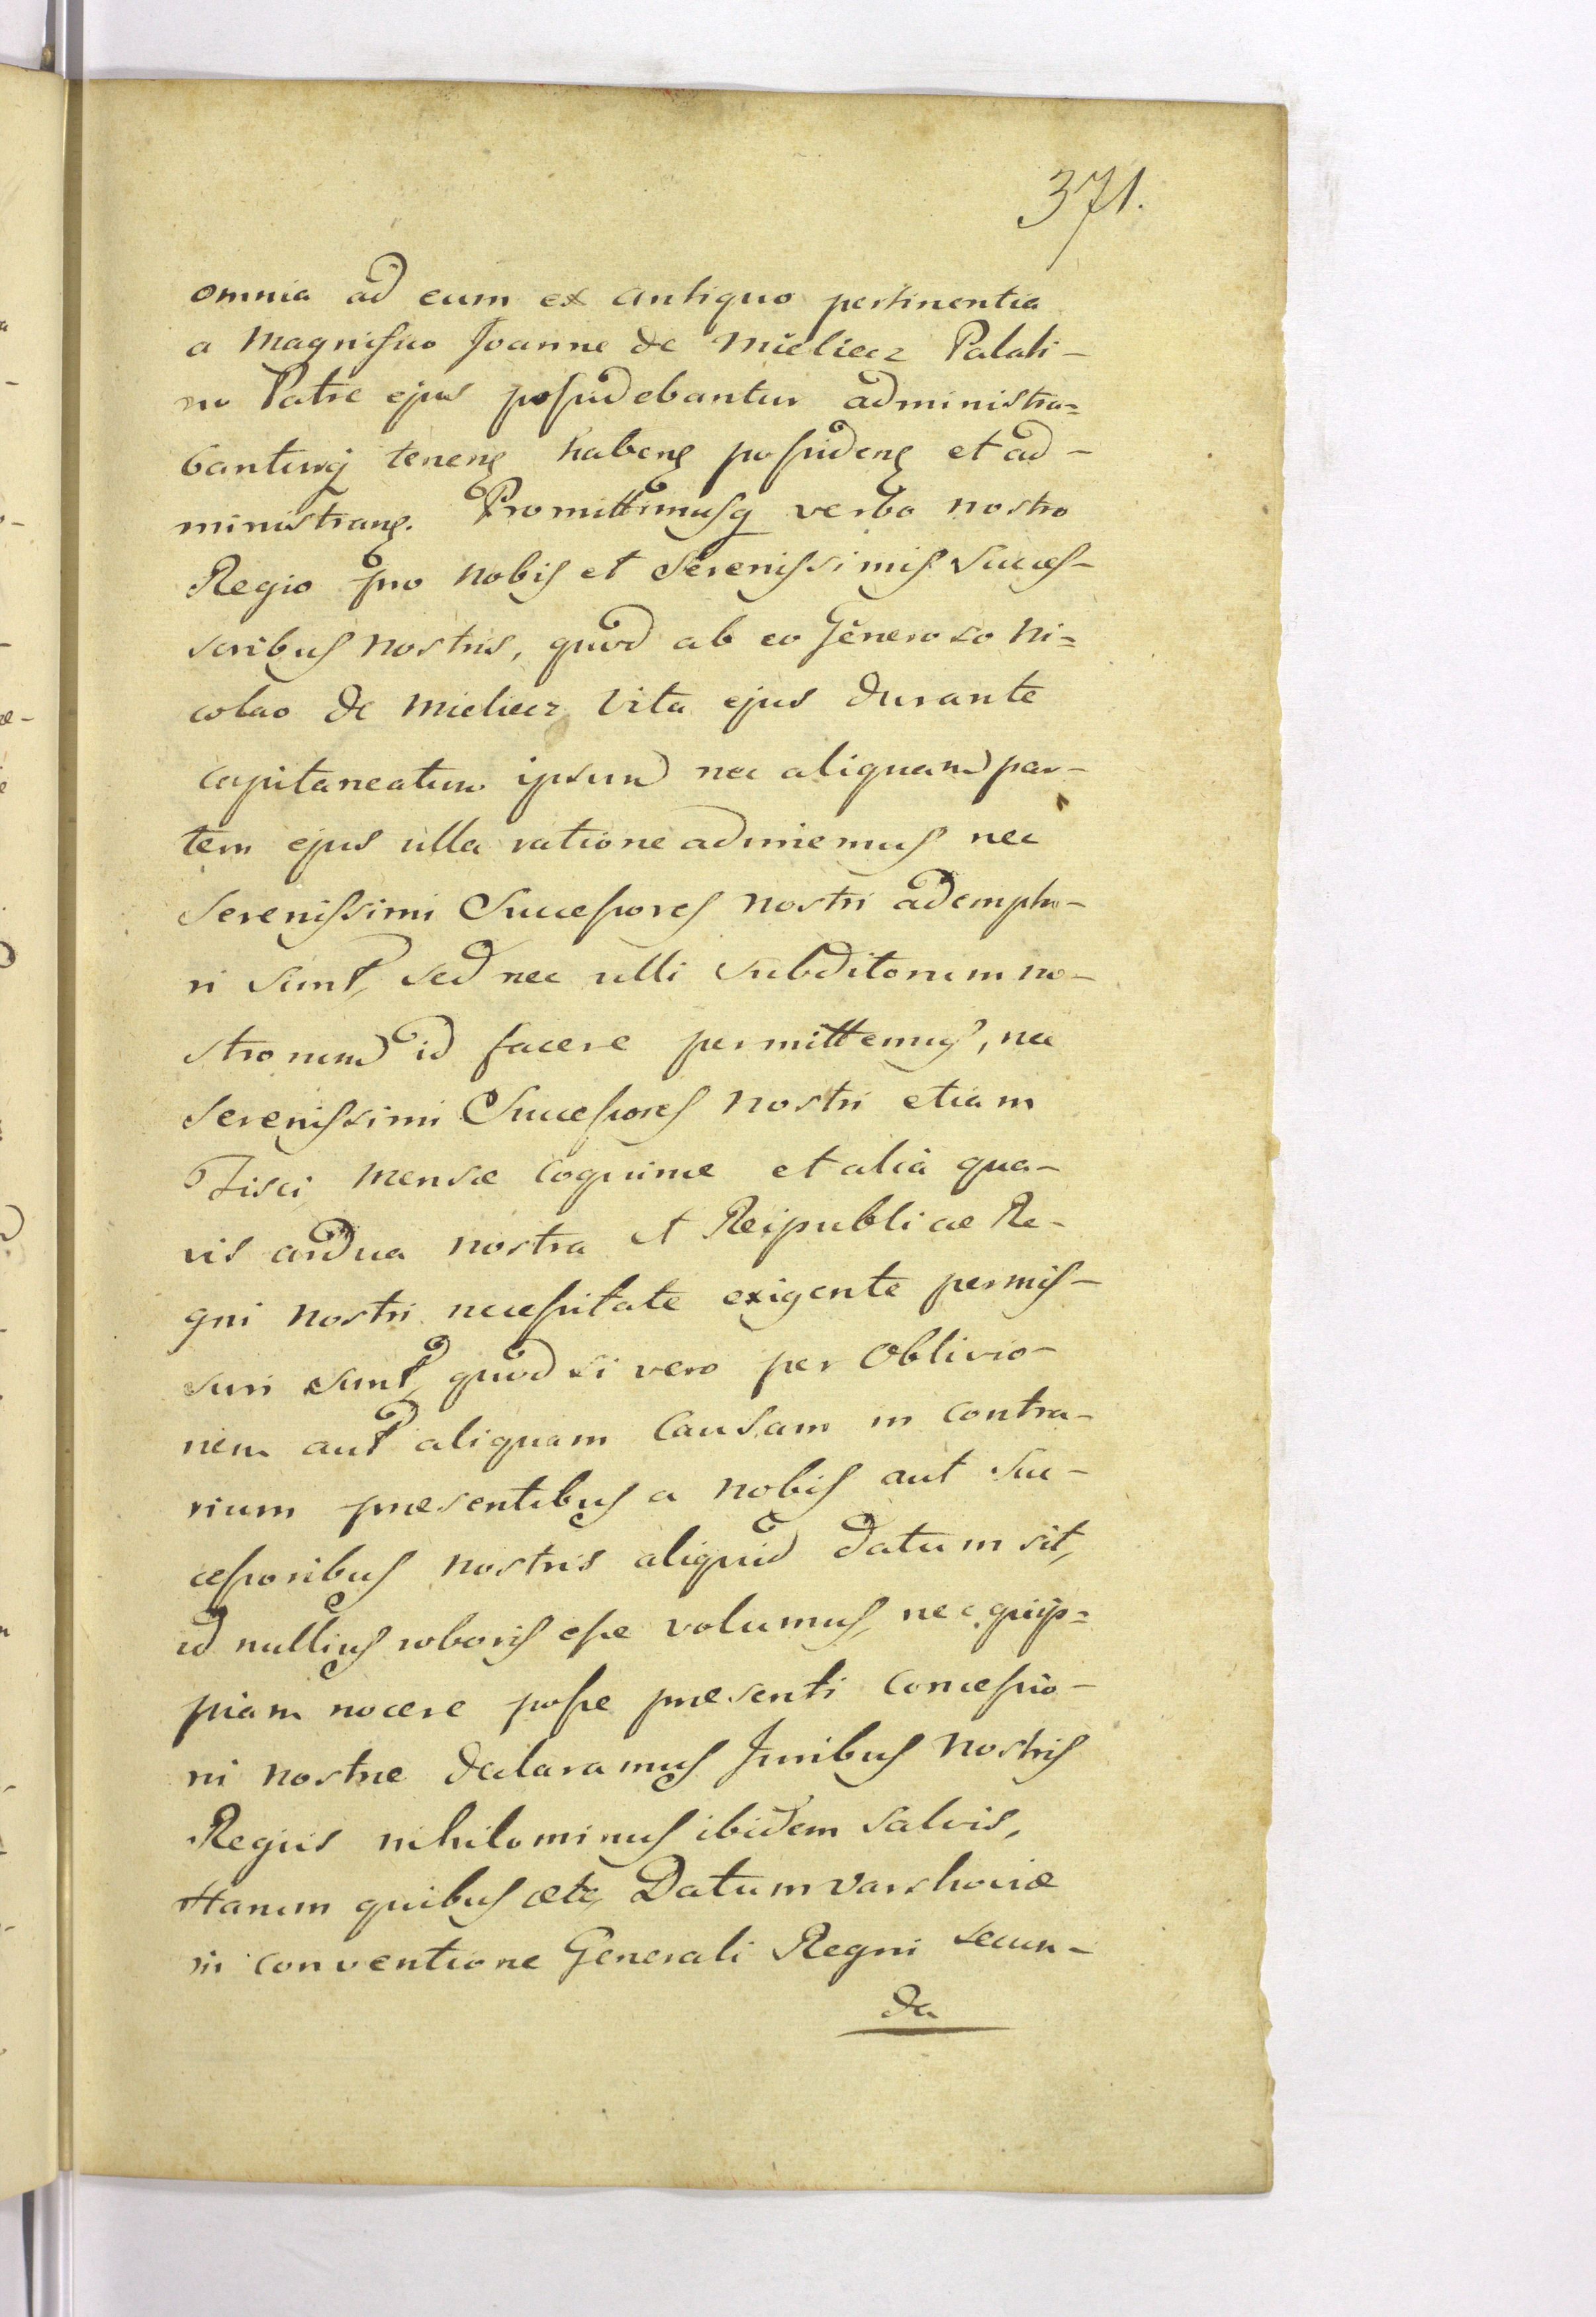 371.
omnia ad eum ex antiquo pertinentia
a Magnifico Joanne de Mieliecz Palati-
no Patre ejus possidebantur administra=
banturq tenenꝭ habenꝭ possidenꝭ et ad-
ministranꝭ. Promittimusq verbo nostro
Regio pro nobis et Serenissimis Succes-
soribus nostris, quod ab eo Generoso Ni=
colao de Mieliecz vita ejus durante
capitaneatum ipsum nec aliquam par-
tem ejus ulla ratione adimemus nec
Serenissimi Successores nostri ademptu-
ri sunt, sed nec ulli subditorum no-
strorum id facere permittemus, nec
Serenissimi Successores nostri etiam
Fisci Mensæ coquinæ et alia qua-
vis ardua nostra et Reipublicæ Re-
gni nostri necessitate exigente permis-
suri sunt, quod si vero per oblivio-
nem aut aliquam Causam in contra-
rium præsentibus a nobis aut Suc-
cessoribus nostris aliquid datum sit,
id nullius roboris esse volumus, nec quip=
piam nocere posse præsenti concessio-
ni nostræ declaramus Juribus nostris
Regiis nihilominus ibidem salvis,
Harum quibus etc, Datum Varshoviæ
in conventione Generali Regni secun-
da